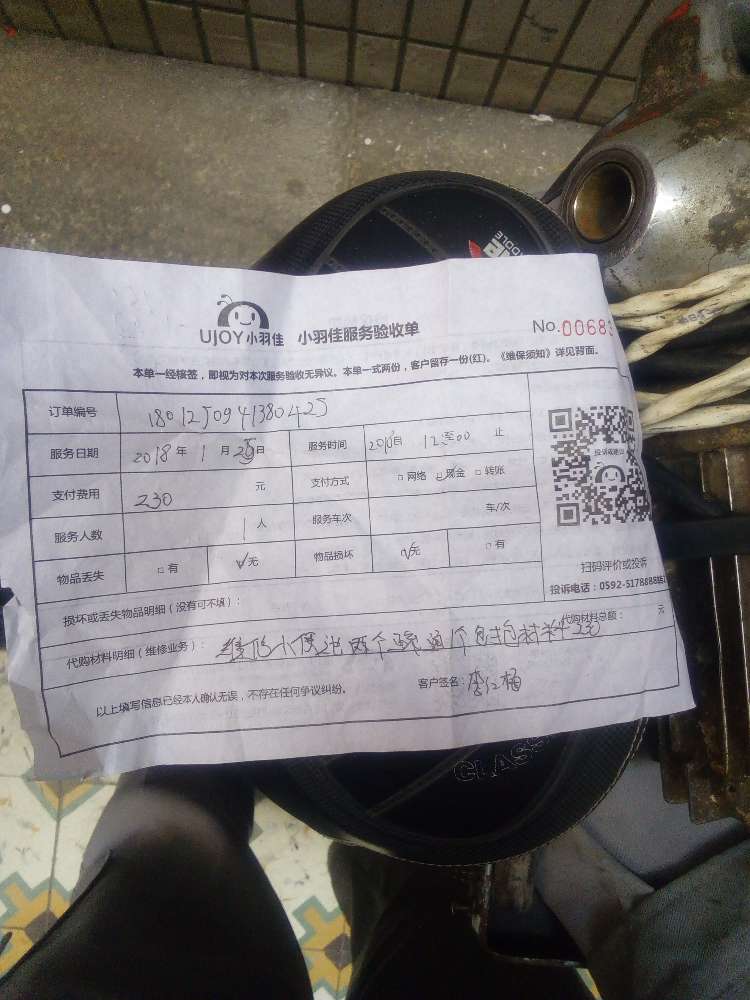 UJOY小羽佳 小羽佳服务验收单 No.00683
本单一经核签，即视为对本次服务验收无异议。本单一式两份，客户留存一份(红)。《维保须知》详见背面。
订单编号 180125094138042J
服务日期 2018年1月25日 服务时间 12至00止
支付费用 230元 支付方式 □网络 □现金 □转账
服务人数 1人 服务车次 车/次
物品丢失 □有 √无 物品损坏 √无 □有
投诉或建议
扫码评价或投诉
投诉电话：0592-5178888
损坏或丢失物品明细（没有可不填）：
代购材料明细（维修业务）： 维修小便池两个 包材料 代购材料总额： 元
以上填写信息已经本人确认无误，不存在任何争议纠纷。 客户签名：李红梅
CLASS